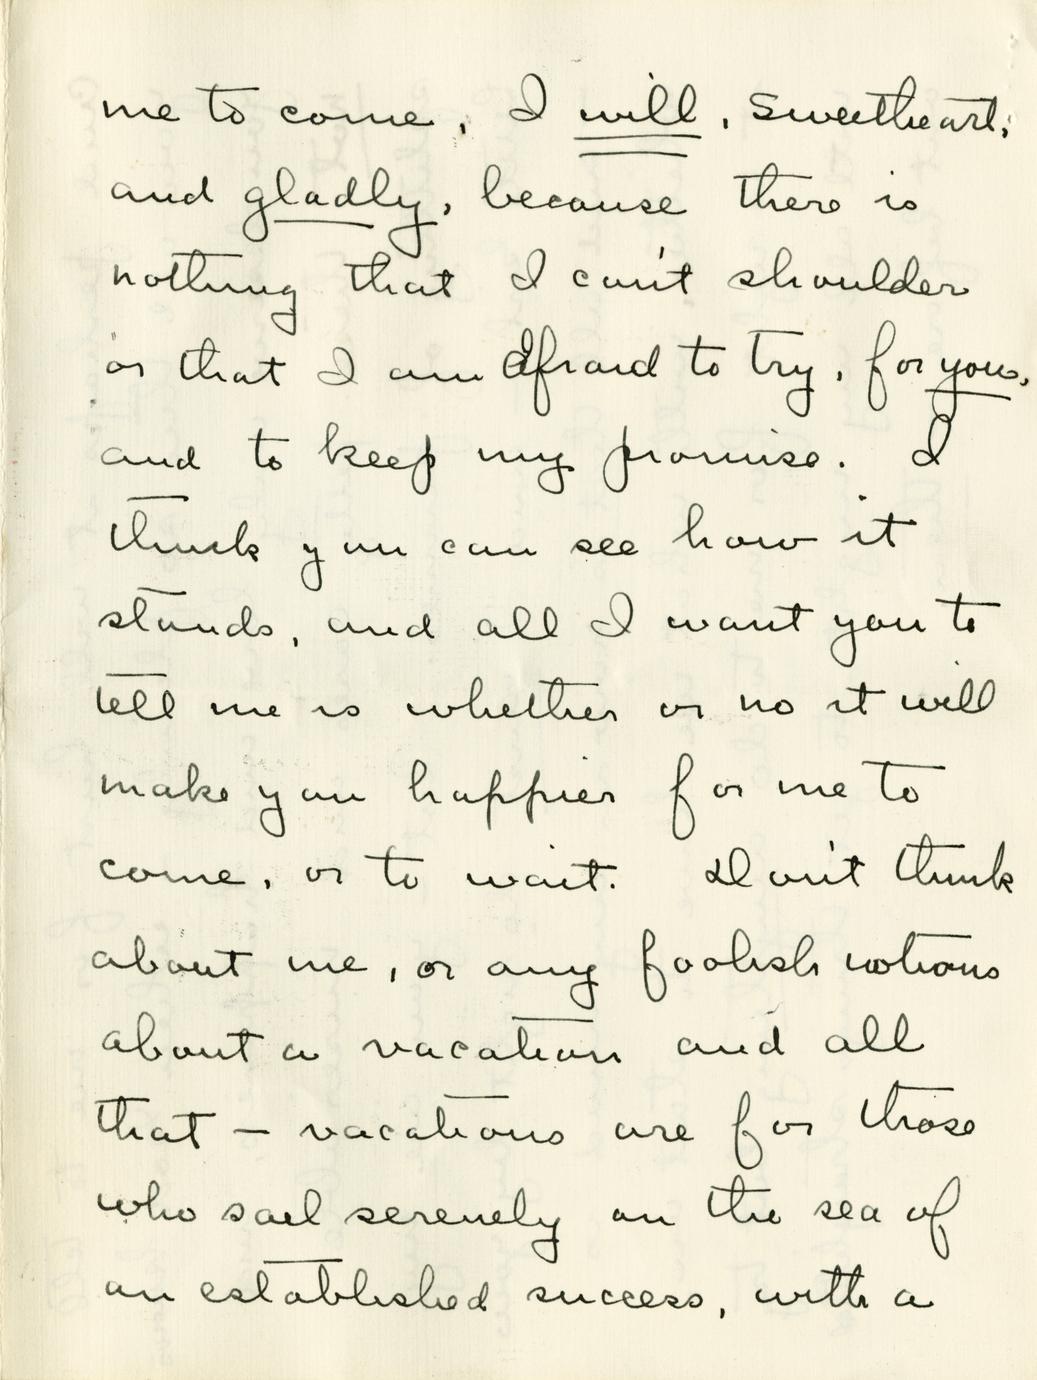 me to come, I will, sweetheart,
and gladly, because there is
nothing that I can't shoulder
or that I am afraid to try, for you,
and to keep my promise. I
think you can see how it
stands, and all I want you to
tell me is whether or no it will
make you happier for me to
come, or to wait. Don't think
about me, or any foolish notions
about a vacation and all
that — vacations are for those
who sail serenely on the sea of
an established success, with a